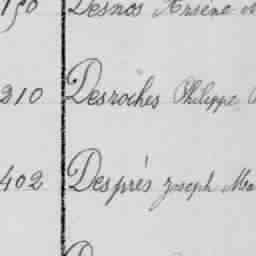 150 Desnos Arsène
210 Desroches Philippe
402 Després Joseph Ma